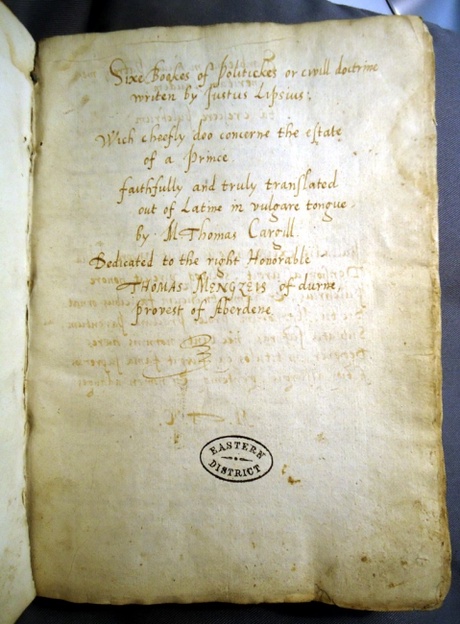 Sixe Bookes of Politickes or civill doctrine
writen by Justus Lipsius:
Wich cheefly doo concerne the estate
of a Prince
faithfully and truly translated
out of Latine in vulgare tongue
by M Thomas Cargill
Dedicated to the right Honorable
THOMAS MENGZEIS of durne,
provest of Aberdene
EASTERN
DISTRICT